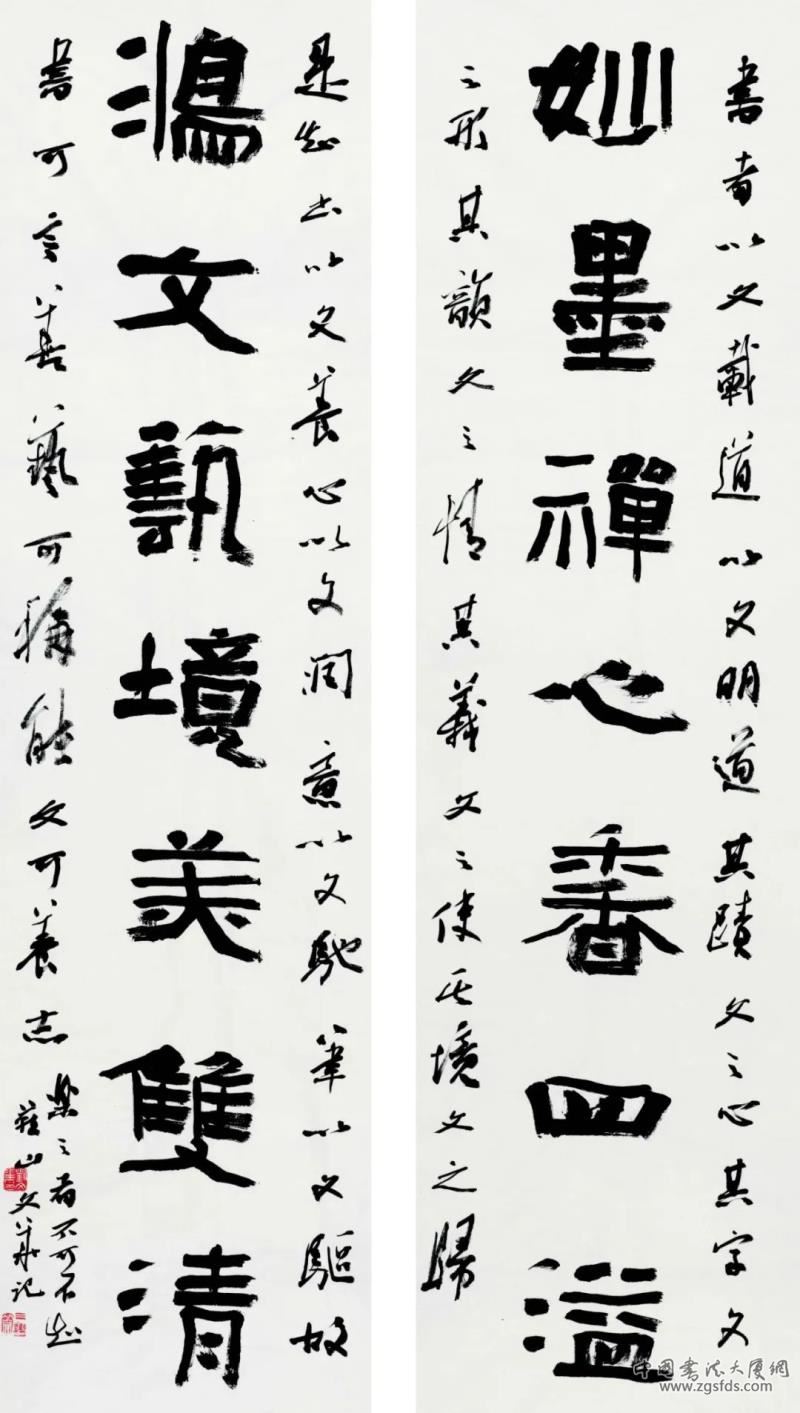 書者以文載道以文明道其蹟文之心其字文
妙墨禪心香四溢
之形其韻文之情其義文之使其境文之歸
是知以文養心以文潤意以文馳筆以文驅故
鴻文藝境美雙清
書可言善藝可稱能文可養志
樂之者不可不知
山文華記
中国書法大厦網
www.zgsfds.com